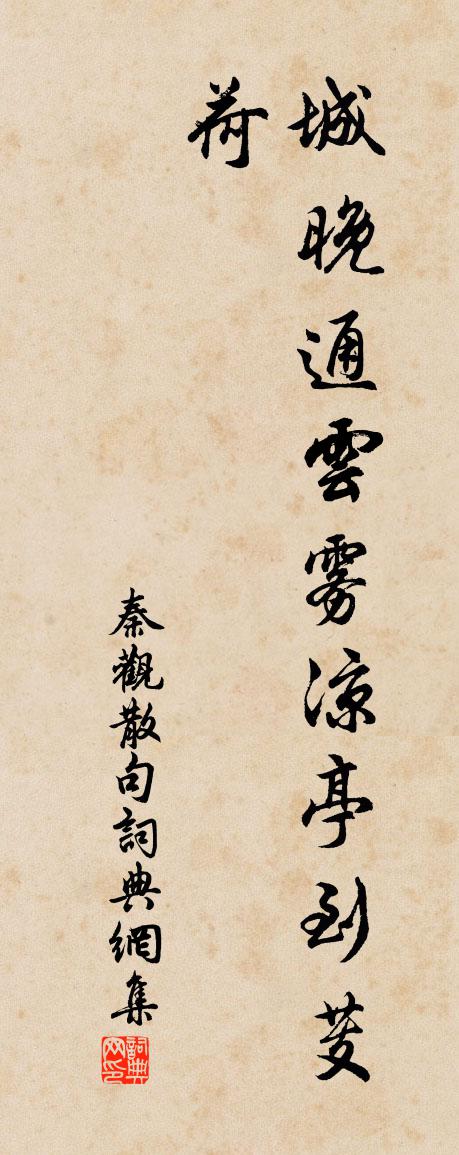 城晚通雲雾涼亭到芰
荷
秦觀散句詞典網集
詞典网印